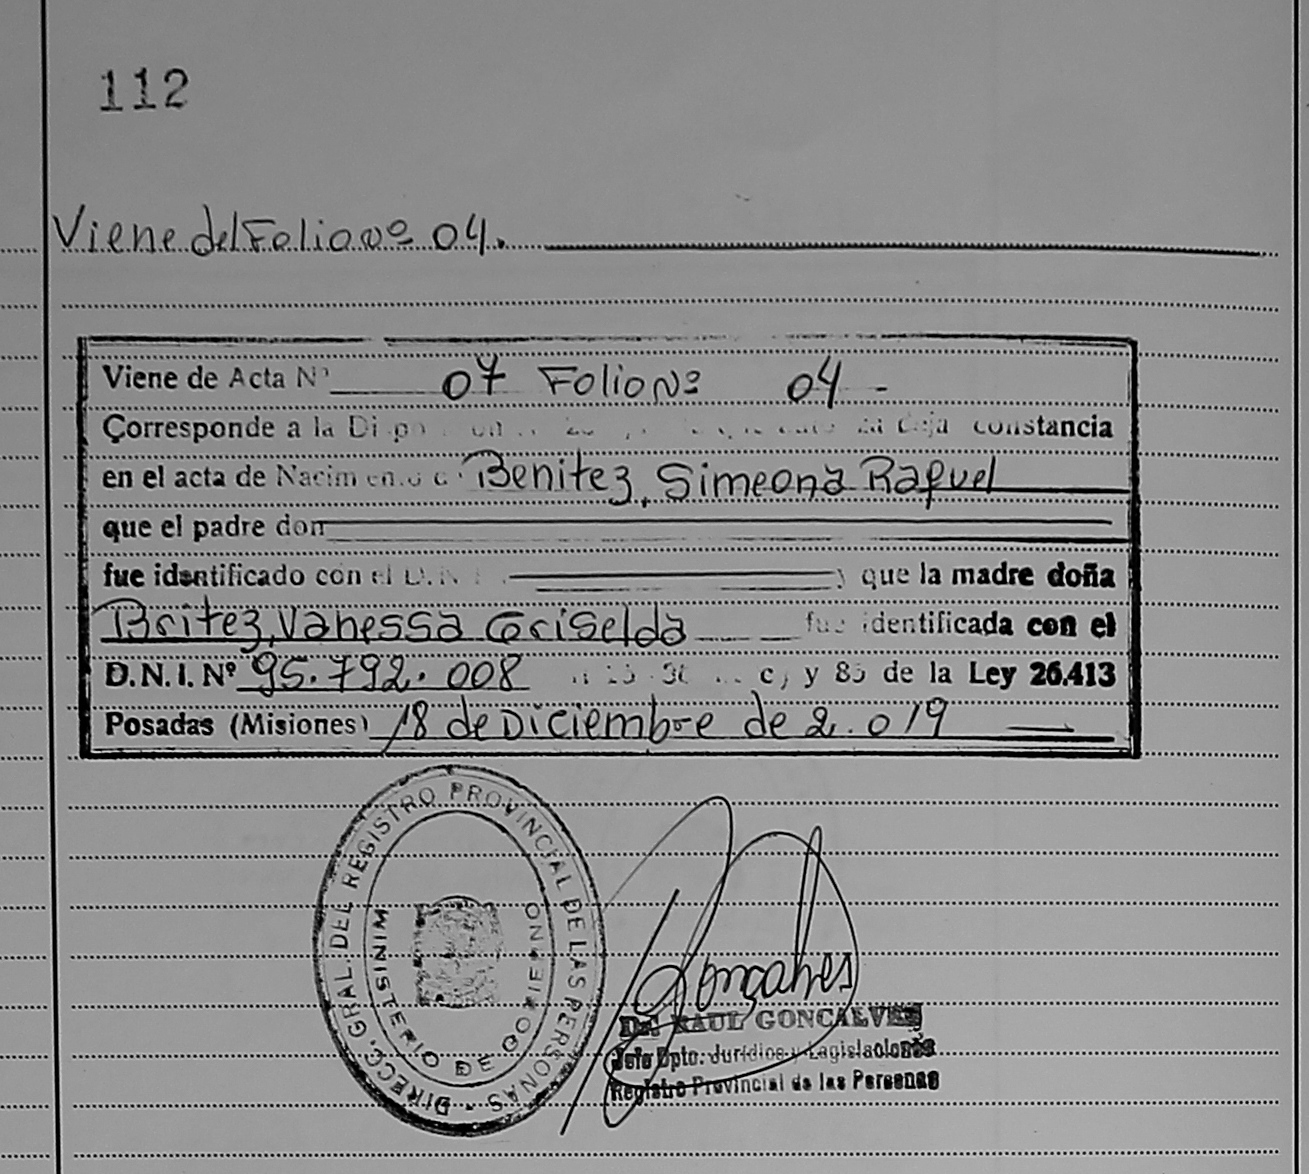 112
Viene del Folio nº 04.
Viene de Acta Nº 07 Folio Nº 04 -
Corresponde a la deja constancia
en el acta de Nacimiento Benitez, Simeona Raquel
que el padre don
fue identificado con el D.N.I. y que la madre doña
Britez, Vanessa Griselda fue identificada con el
D.N.I. Nº 95.792.008 c) y 85 de la Ley 26.413
Posadas (Misiones) 18 de Diciembre de 2.019
DIRECC. GRAL. DEL REGISTRO PROVINCIAL DE LAS PERSONAS -
MINISTERIO DE GOBIERNO
Goncalves
Dr. RAUL GONCALVES
Jefe Dpto. Jurídico y Legislaciones
Registro Provincial de las Personas